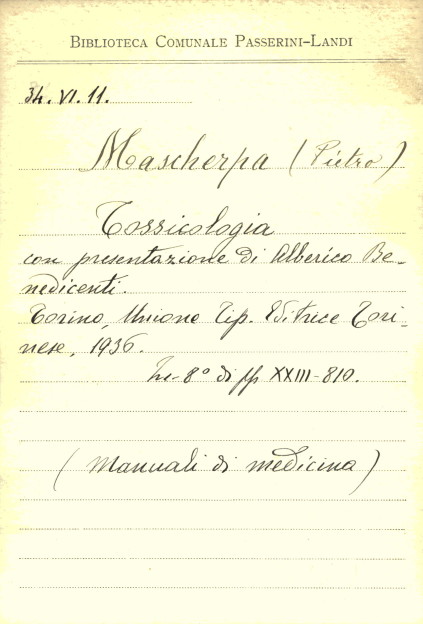 BIBLIOTECA COMUNALE PASSERINI-LANDI
34. VI. 11.
Mascherpa (Pietro)
Tossicologia
con presentazione di Alberico Be-
nedicenti.
Torino, Unione Tip. Editrice Tori-
nese, 1936.
In-8° di pp XXIII-810.
(Manuali di medicina)